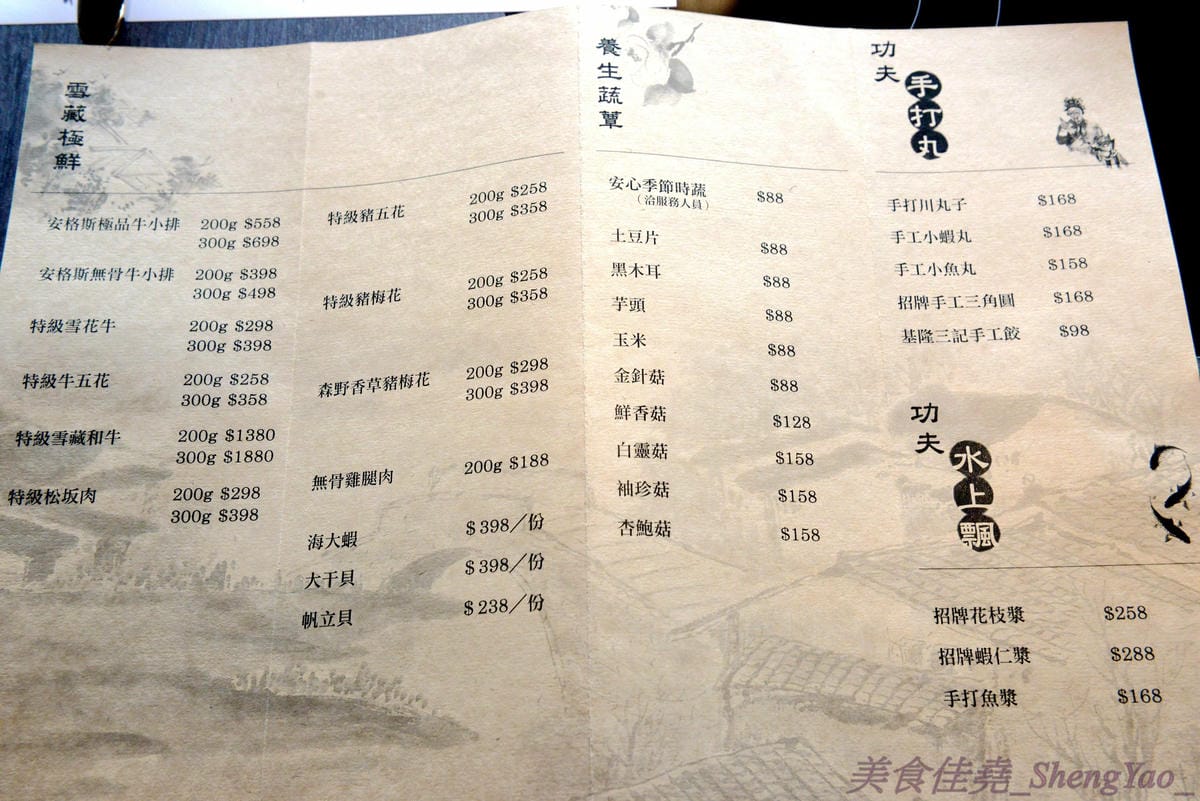 雪藏極鮮
安格斯極品牛小排 200g $558
300g $698
安格斯無骨牛小排 200g $398
300g $498
特級雪花牛 200g $298
300g $398
特級牛五花 200g $258
300g $358
特級雪藏和牛 200g $1380
300g $1880
特級松坂肉 200g $298
300g $398
特級豬五花 200g $258
300g $358
特級豬梅花 200g $258
300g $358
森野香草豬梅花 200g $298
300g $398
無骨雞腿肉 200g $188
海大蝦 $398/份
大干貝 $398/份
帆立貝 $238/份
養生蔬蕈
安心季節時蔬 $88
(洽服務人員)
土豆片 $88
黑木耳 $88
芋頭 $88
玉米 $88
金針菇 $88
鮮香菇 $128
白靈菇 $158
袖珍菇 $158
杏鮑菇 $158
功夫
手打丸
手打川丸子 $168
手工小蝦丸 $168
手工小魚丸 $158
招牌手工三角圓 $168
基隆三記手工餃 $98
功夫
水上飄
招牌花枝漿 $258
招牌蝦仁漿 $288
手打魚漿 $168
美食佳堯_ShengYao_